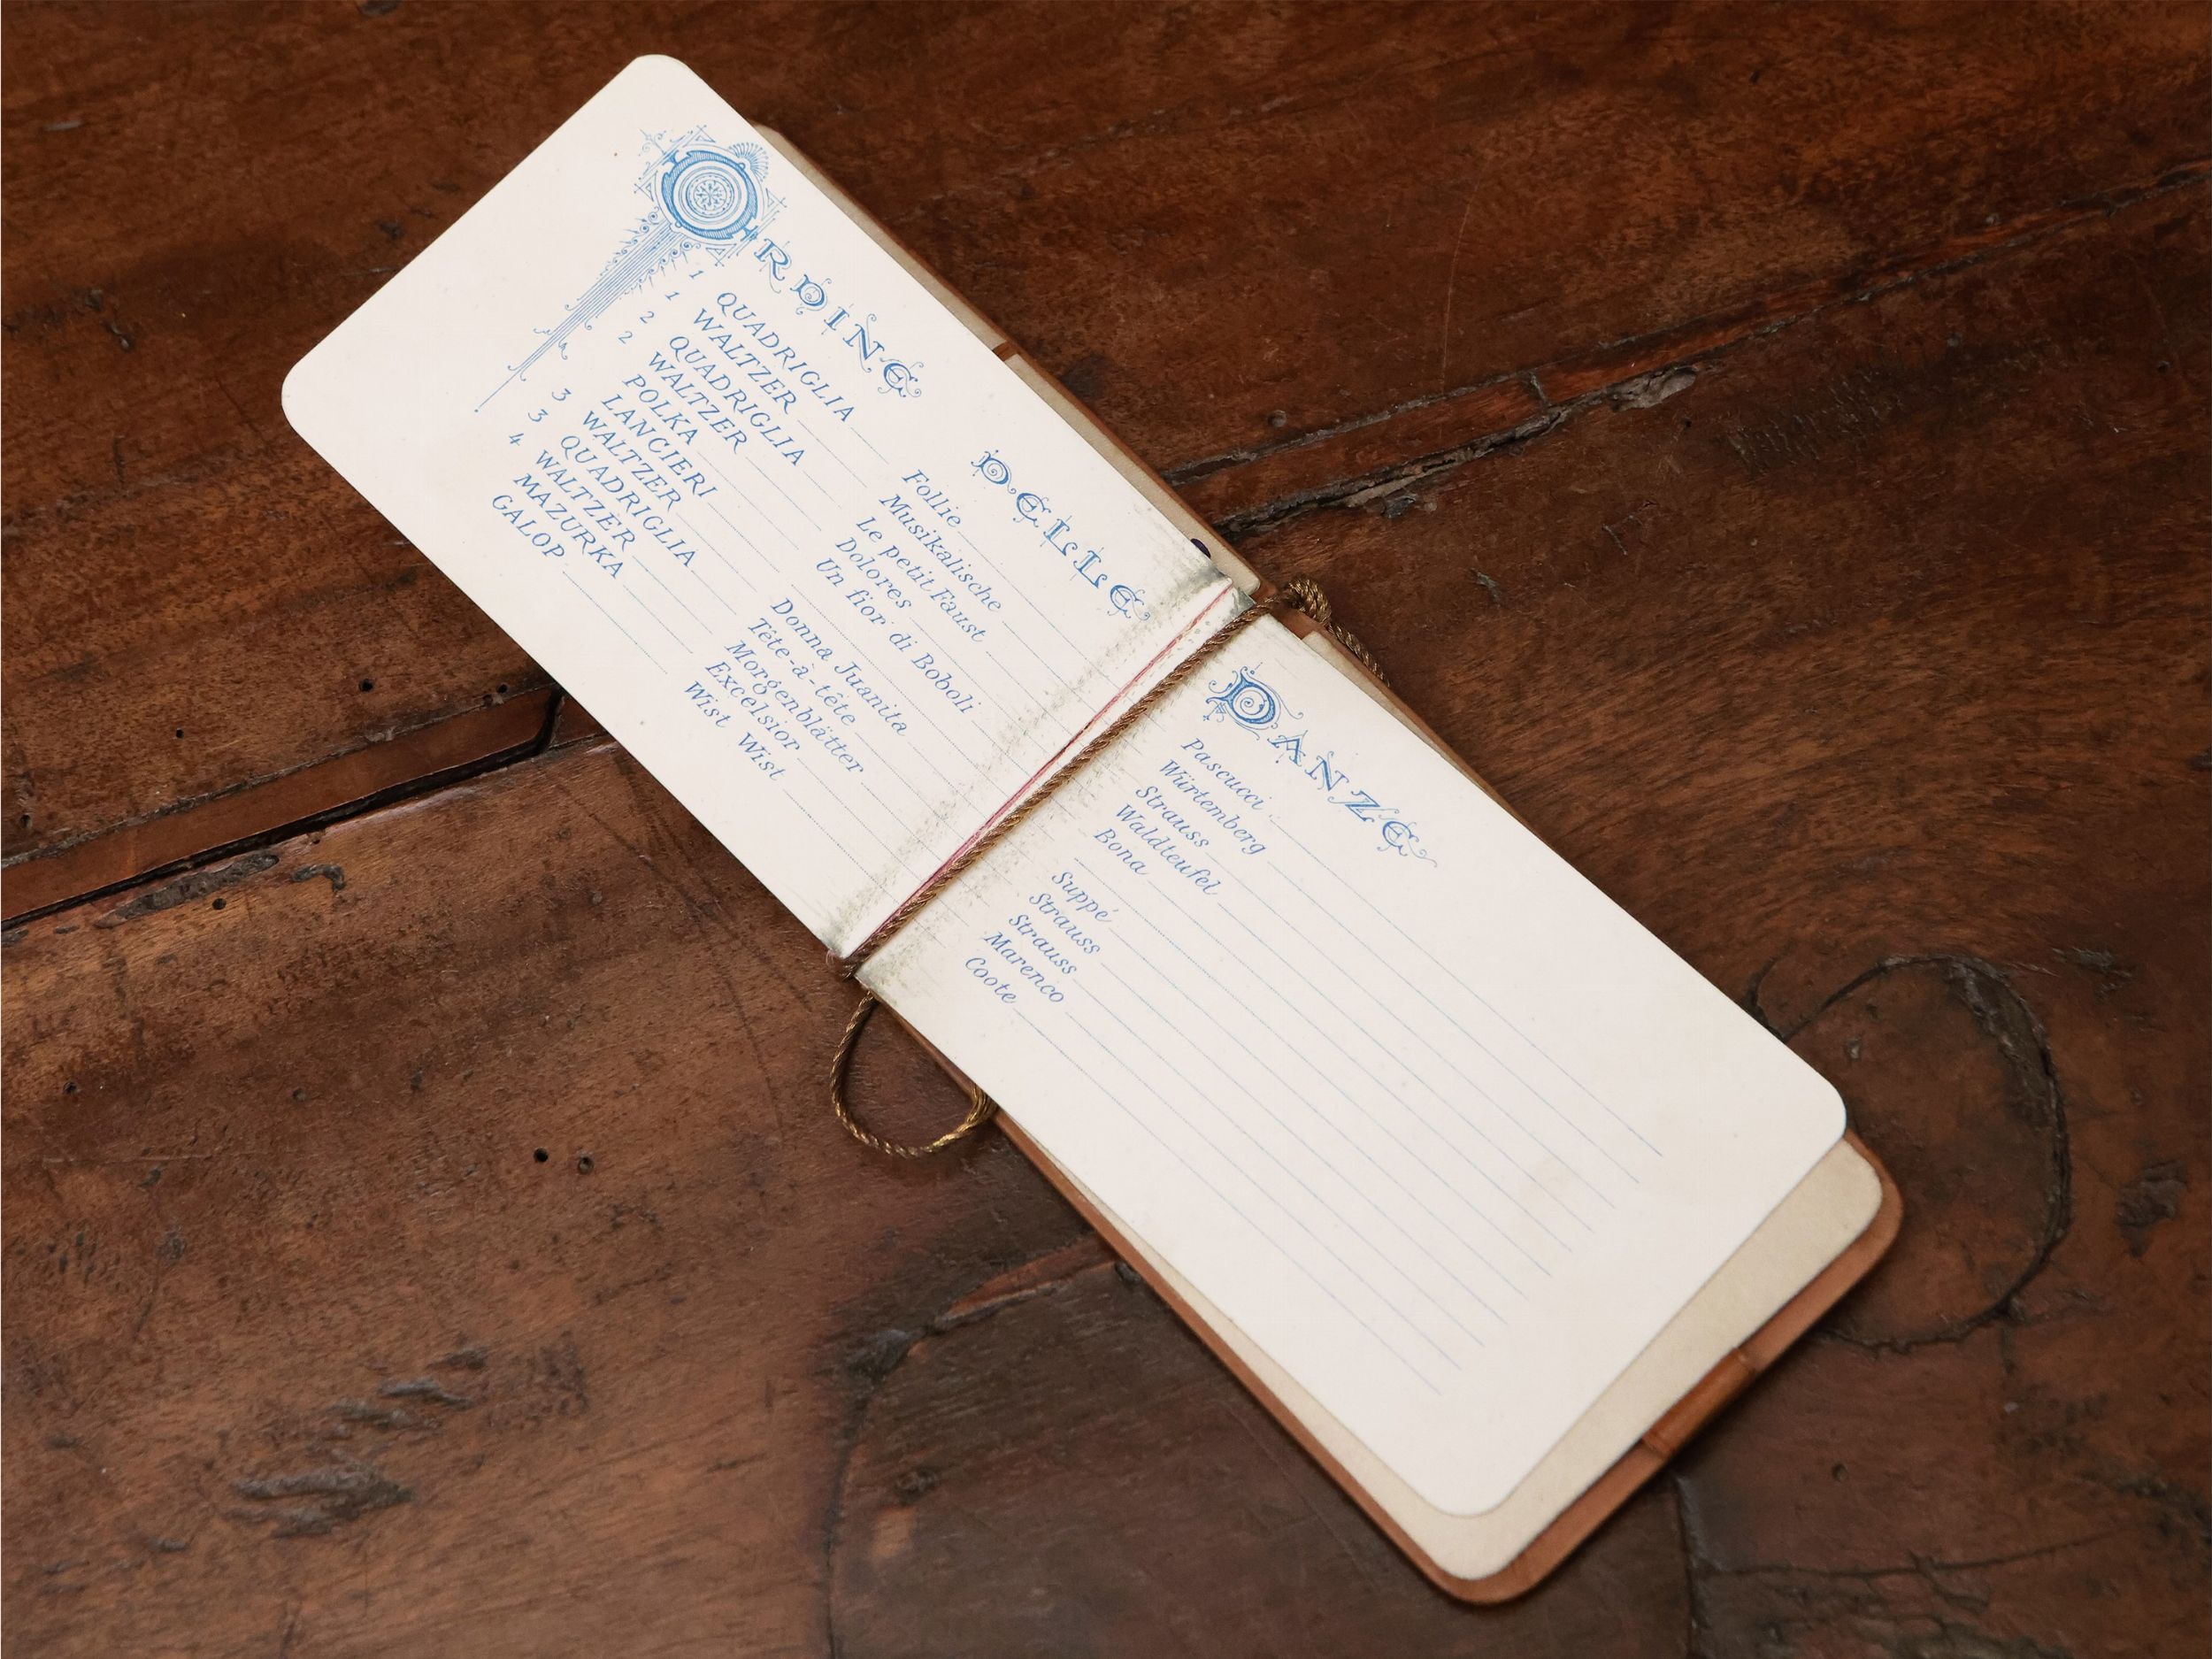 ORDINE DELLE DANZE
1 QUADRIGLIA Follie Pascucci
1 WALTZER Musikalische Würtemberg
2 QUADRIGLIA Le petit Faust Strauss
2 WALTZER Dolores Waldteufel
POLKA Un fior di Boboli Bona
LANCIERI
3 WALTZER Donna Juanita Suppé
3 QUADRIGLIA Tête-à-tête Strauss
4 WALTZER Morgenblätter Strauss
MAZURKA Excelsior Marenco
GALOP Wist Wist Coote